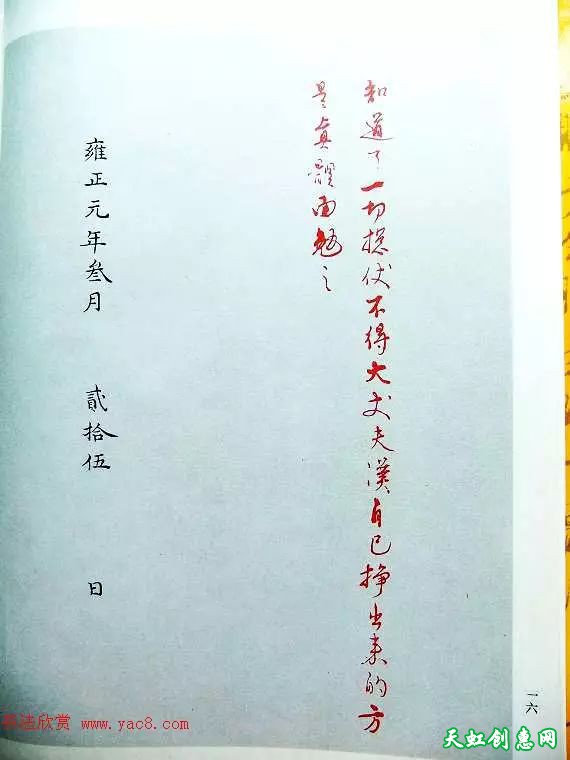 知道了一切捴仗不得大丈夫漢自己掙出来的方
是真體面勉之
雍正元年叁月 貳拾伍 日
一六
书法欣赏 www.yac8.com
天虹创惠网